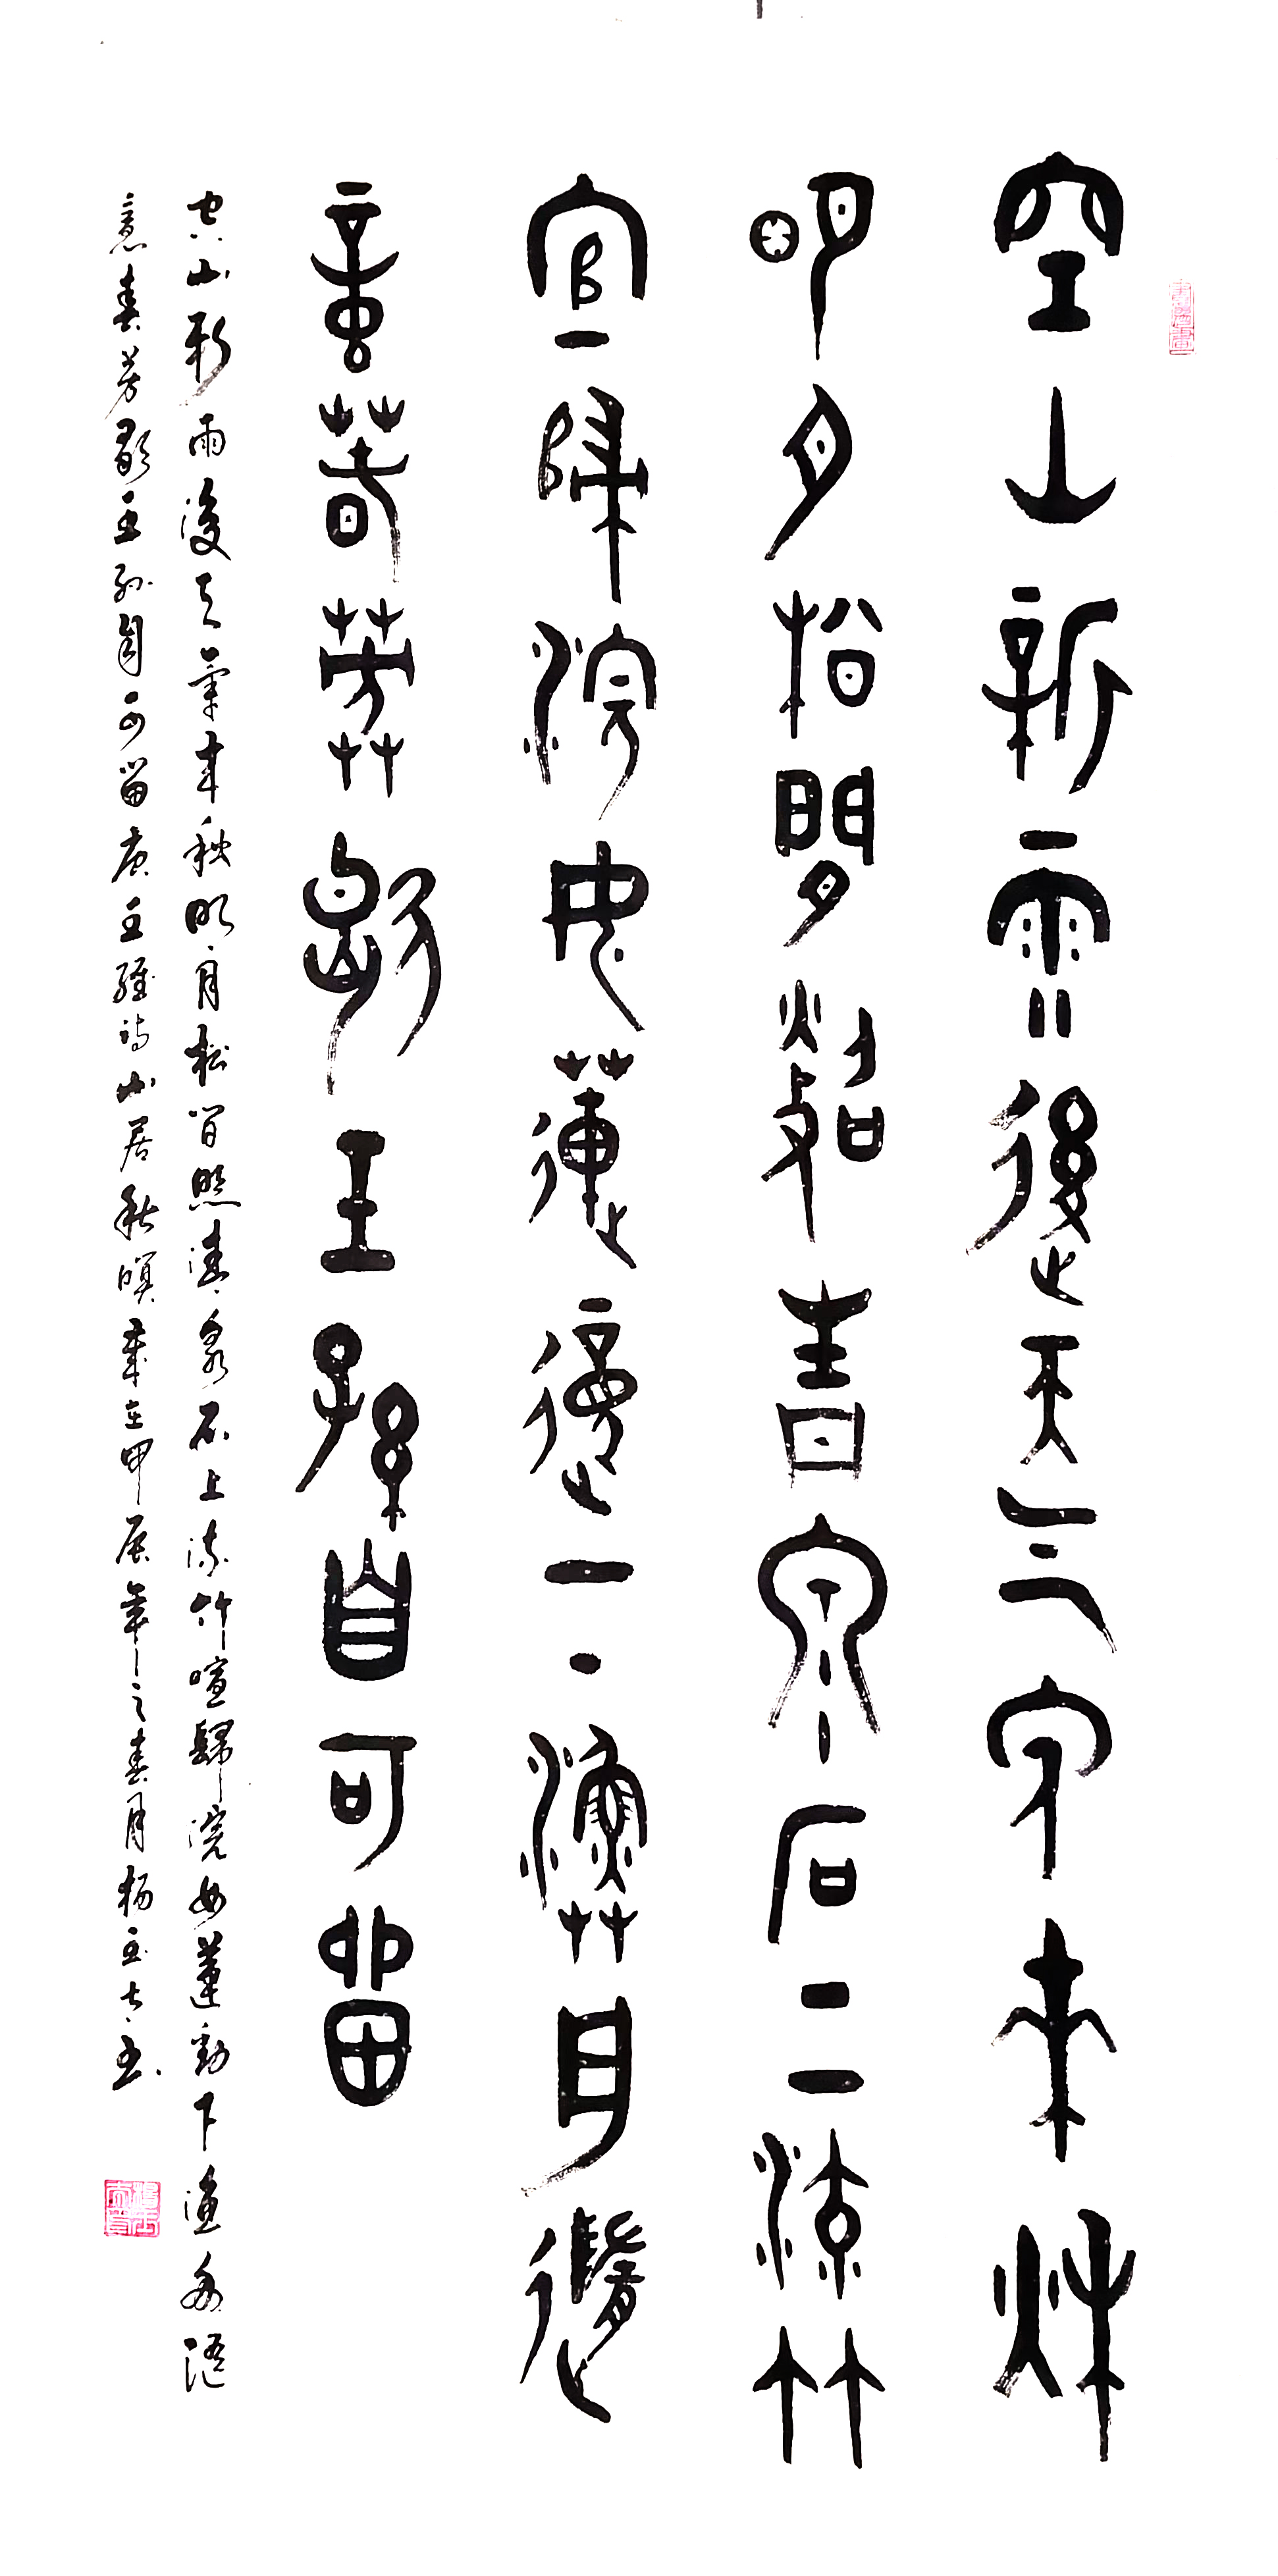 空山新雨後天气晚來秋
明月松閒照青泉石上流竹
宣歸浣女蓮動下漁舟隨
意春芳歇王孫自可留
空山新雨後天氣来秋明月松间照清泉石上流竹喧歸浣女蓮動下漁舟随
意春芳歇王孫自可留唐王維詩山居秋暝歲在甲辰年之春月楊玉书